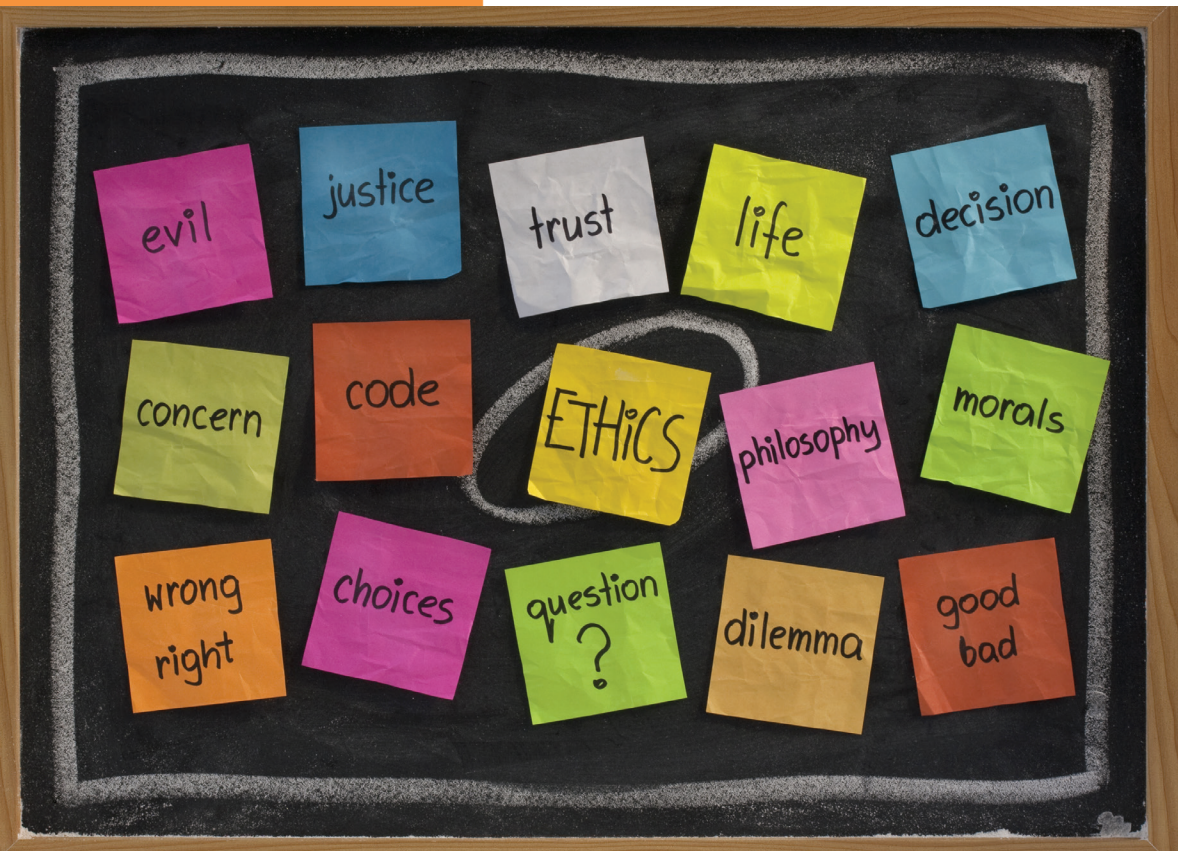 evil
justice
trust
life
decision
concern
code
ETHiCS
philosophy
morals
wrong
right
choices
question
?
dilemma
good
bad